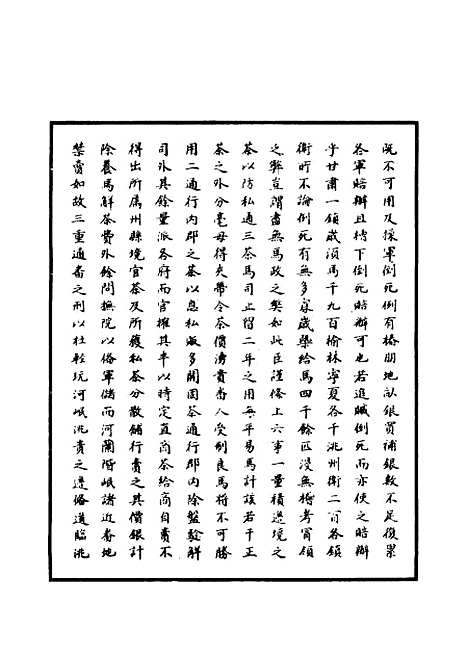 既不可用及採軍倒死例有樁朋地畝銀買補銀數不足復累
各軍賠辦且椅下倒死賠辦可也若追賊倒死而亦使之賠辦
乎甘肅一鎮歲須馬千九百榆林寧夏各千洮州衛二百各鎮
衛所不論倒死有無多寡歲槩給馬四千餘匹漫無稽考胃領
之弊豈謂盡無馬政之獎如此臣謹條上六事一量積邊境之
茶以防私通三茶馬司止留二年之用每平易馬計該若干正
茶之外分毫毋得夾帶令茶價湧貴番人受制良馬將不可勝
用二通行內郡之茶以息私販多開園茶通行郡內除盤驗解
司外其餘量派各府而官榷其半以時定直商茶給商自賣不
得出所屬州縣境官茶及所獲私茶分散鋪行賣之其價銀計
除養馬解茶費外餘悶撫院以俻軍儲而河蘭階岷諸近番地
禁賣如故三重通番之刑以杜輕玩河岷洮責之邊俻道臨洮